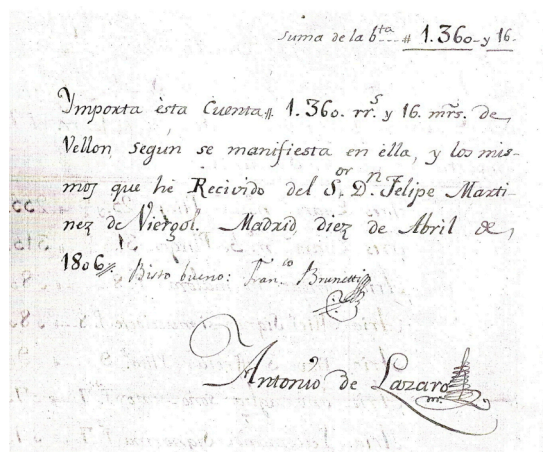 Suma de la b.ta ---- # 1.360- y 16-
Ymporta èsta Cuenta # 1.360. rr.s y 16. mrs. de
Vellon, segùn se manifiesta en ella, y los mis-
mos que hè Recivido del S.or D.n Felipe Marti-
nez de Viergol. Madrid, diez de Abril de,
1806 // Bisto bueno: Fran.co Brunetti
Antonio de Lazaro